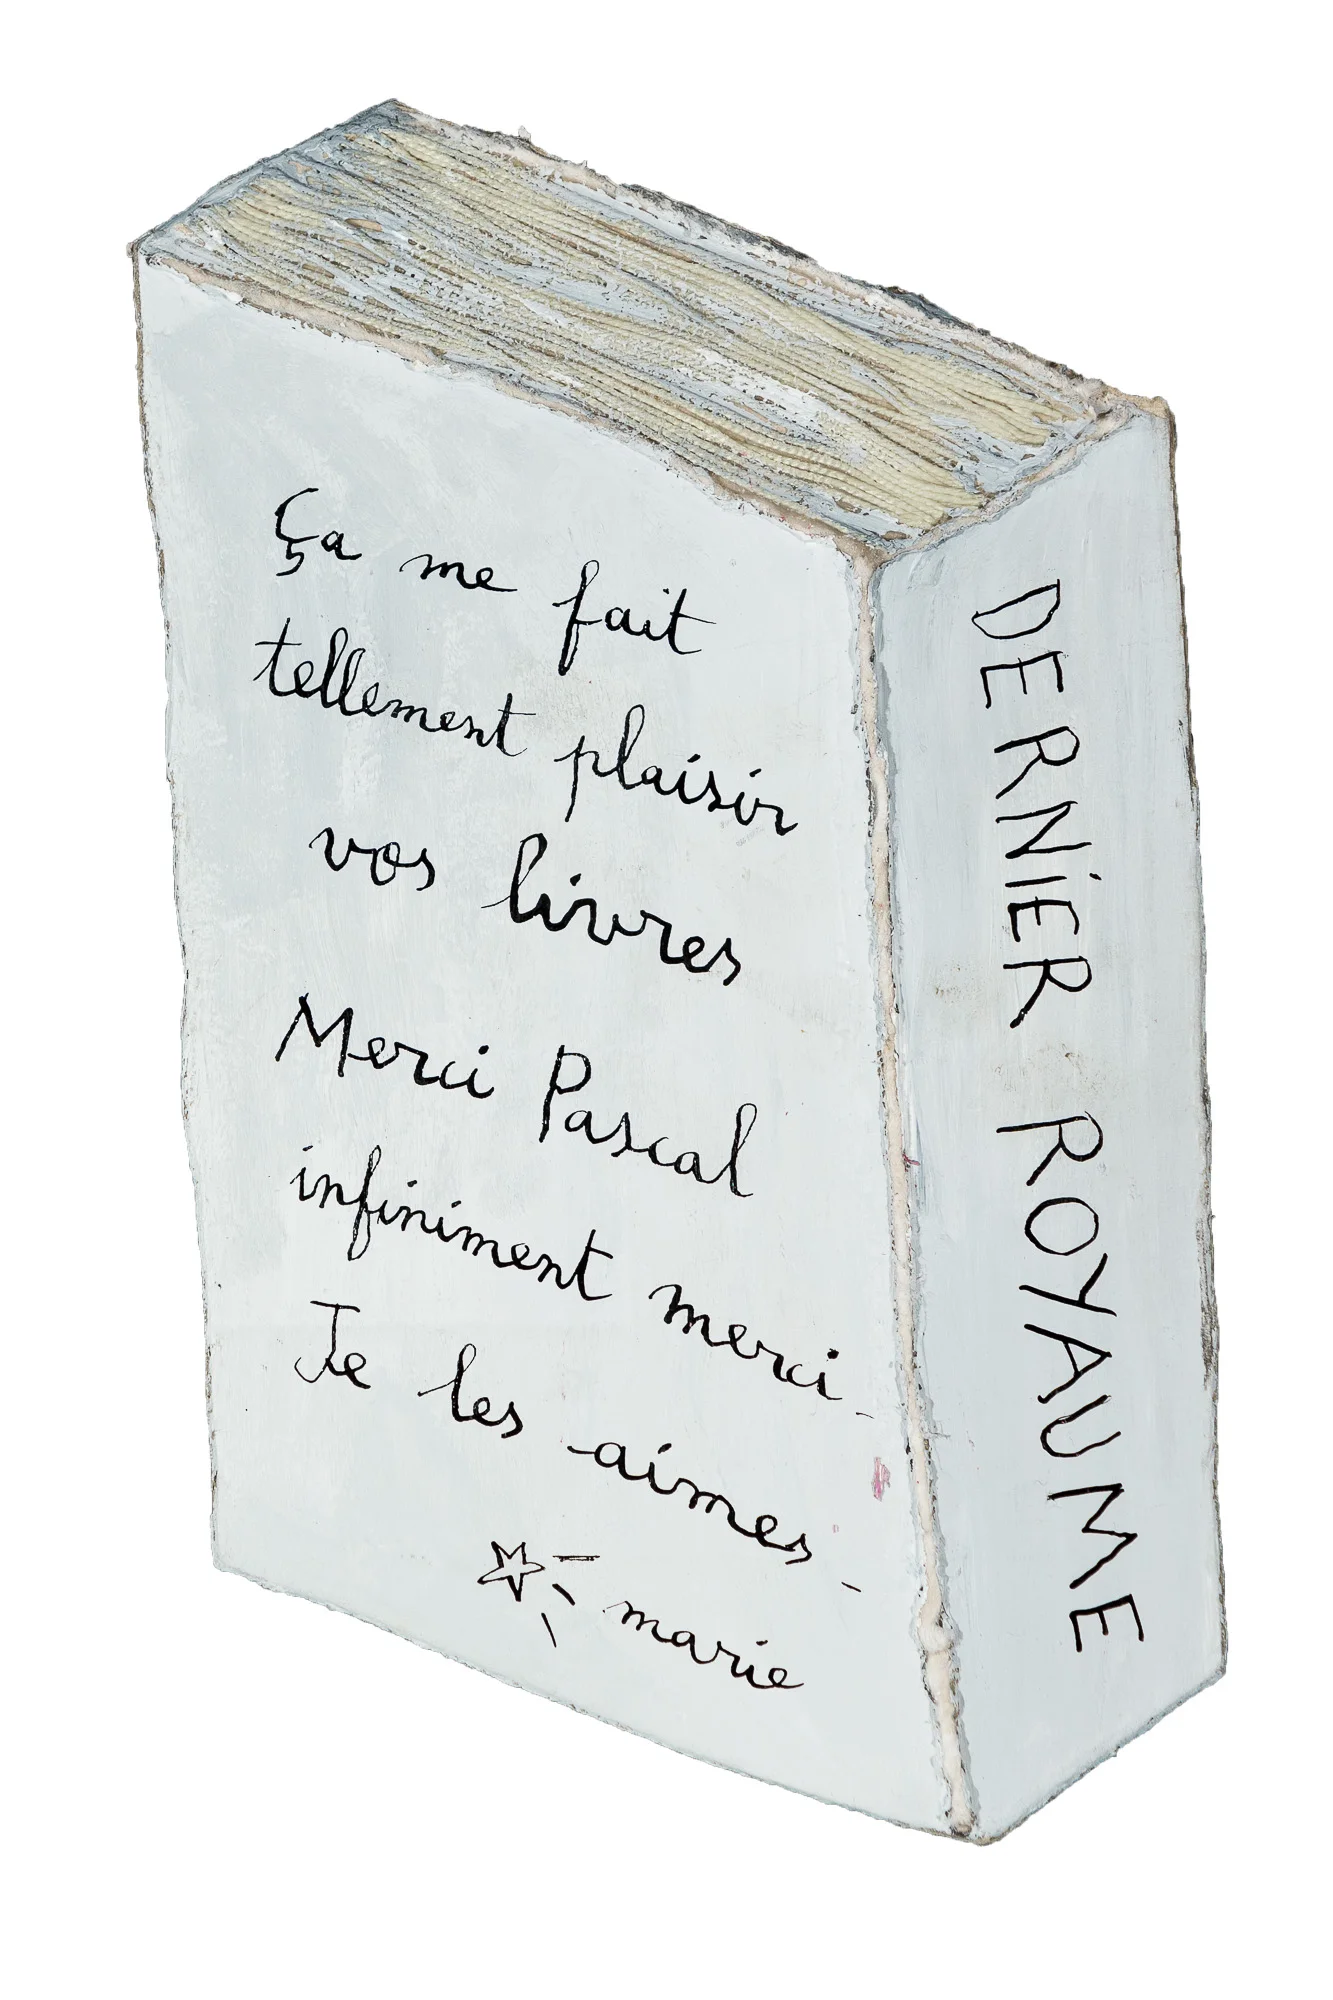 Ça me fait
tellement plaisir
vos livres
Merci Pascal
infiniment merci -
Je les aimes -
marie
DERNIER ROYAUME